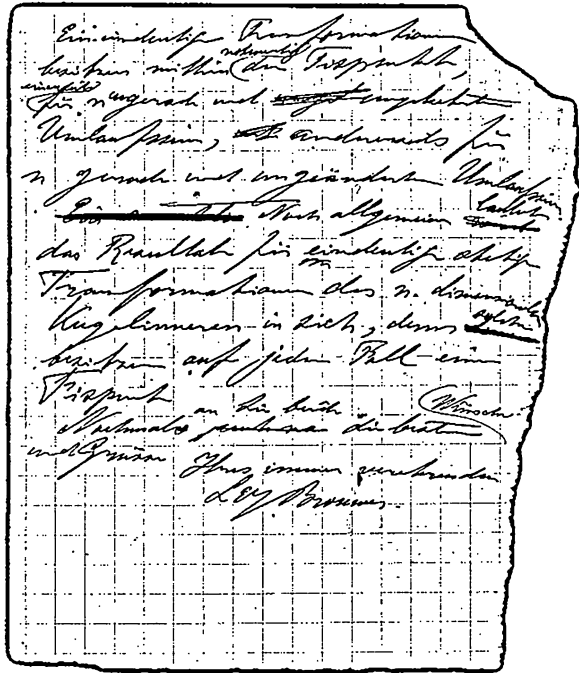 Eineindeutige Transformationen
besitzen mithin notwendig die Fixpunkte,
einerseits für n ungerade und umgekehrten
Umlaufssinn, andererseits für
n gerade und ungeänderten Umlaufssinn
Noch allgemeiner lautet
das Resultat für eindeutige stetige
Transformationen des n-dimensionalen
Kugelinneren in sich, denn
besitzen auf jeden Fall einen
Fixpunkt
Nochmals an Sie beide die besten Wünsche
und Grüsse Ihres immer verehrenden
LEJ Brouwer